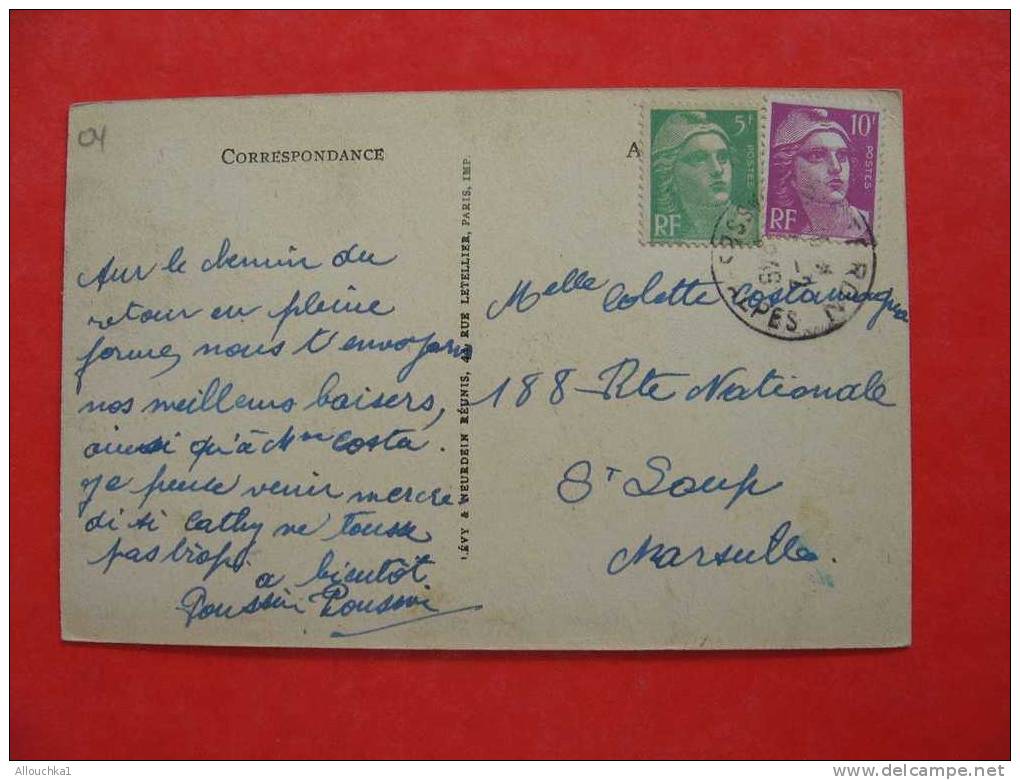 04
CORRESPONDANCE
A
5F
POSTES
RF
10F
POSTES
RF
ALPES
LÉVY & NEURDEIN RÉUNIS, 44, RUE LETELLIER, PARIS, IMP.
Sur le chemin du
retour en pleine
forme, nous t'envoyons
nos meilleurs baisers,
ainsi qu'à Mme Costa.
Je pense venir mercre
di si Cathy ne tousse
pas trop.
a bientôt
Poussin Poussin
Melle Colette Costamagna
188 Rte Nationale
St Loup
Marseille.
Allouchka1
www.delcampe.net